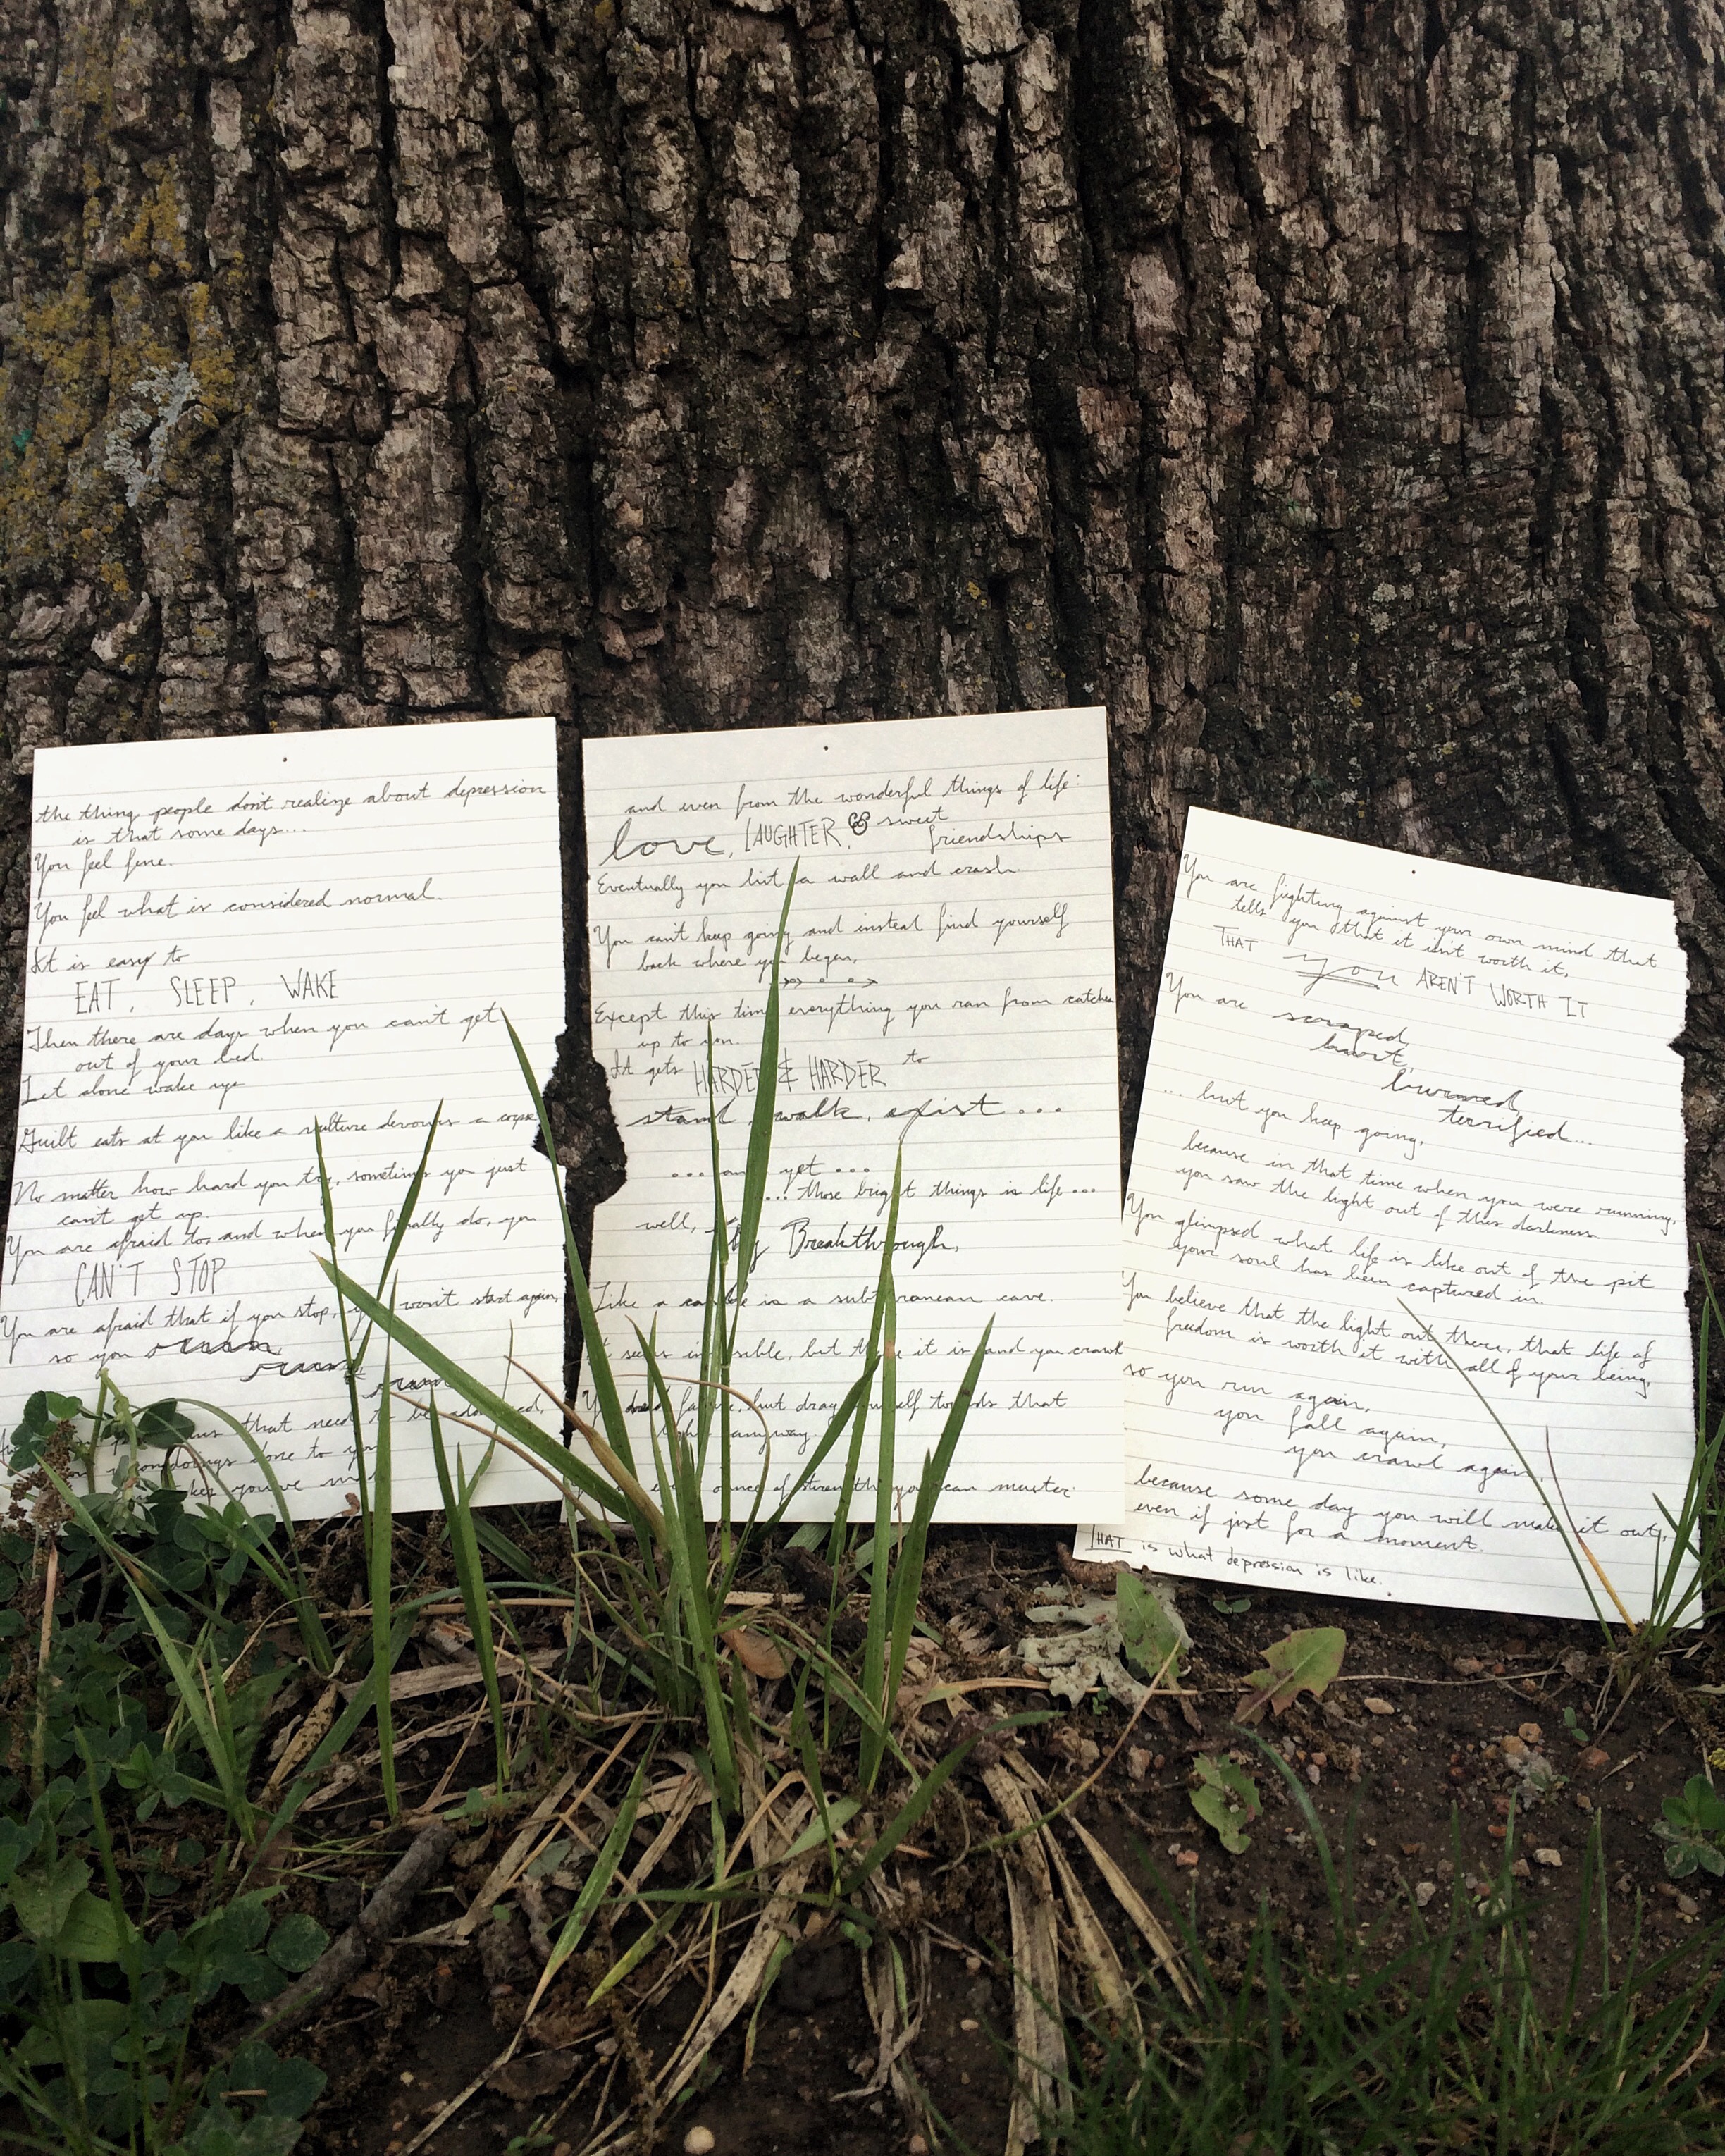 the thing people don't realize about depression
is that some days...
You feel fine.
You feel what is considered normal.
It is easy to
EAT, SLEEP, WAKE
Then there are days when you can't get
out of your bed.
Let alone wake up
Guilt eats at you like a vulture devours a corpse
No matter how hard you try, sometimes you just
can't get up.
You are afraid to, and when you finally do, you
CAN'T STOP
You are afraid that if you stop, won't start again,
so you run
run,
run
that need to be
wrongdoings done to you
you've
and even from the wonderful things of life:
love, LAUGHTER, & sweet
friendships
Eventually you hit a wall and crash.
You can't keep going and instead find yourself
back where you began,
Except this time everything you ran from catches
up to you.
It gets HARDER & HARDER to
stand, walk, exist...
... and yet ...
.... those bright things in life ...
well, they Breakthrough,
Like a candle in a subterranean cave.
It seems impossible, but there it is and you crawl
You dread failure, but drag yourself towards that
light anyway.
ounce of strength you can muster.
You are fighting against your own mind that
tells you that it isn't worth it,
THAT you AREN'T WORTH IT
You are scraped,
burst,
burned
terrified...
... but you keep going,
because in that time when you were running,
you saw the light out of this darkness.
You glimpsed what life is like out of the pit
your soul has been captured in.
You believe that the light out there, that life of
freedom is worth it with all of your being,
so you run again,
you fall again,
you crawl again,
because some day you will make it out,
even if just for a moment.
THAT is what depression is like.